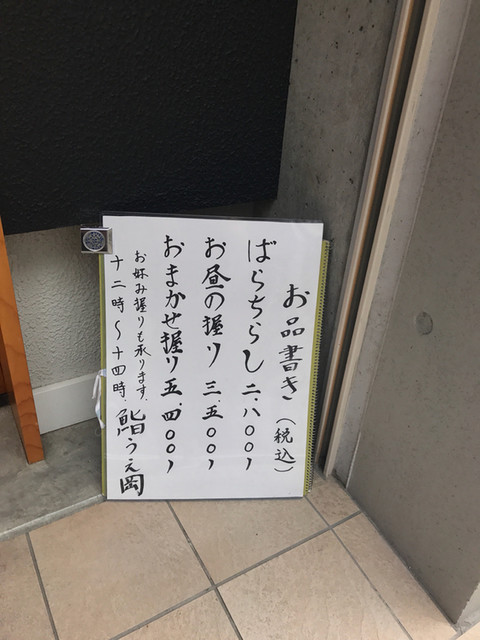 お品書き(税込)
ばらちらし 二、八〇〇円
お昼の握り 三、五〇〇円
おまかせ握り 五、四〇〇円
お好み握りも承ります。
十二時〜十四時 鮨うえ岡